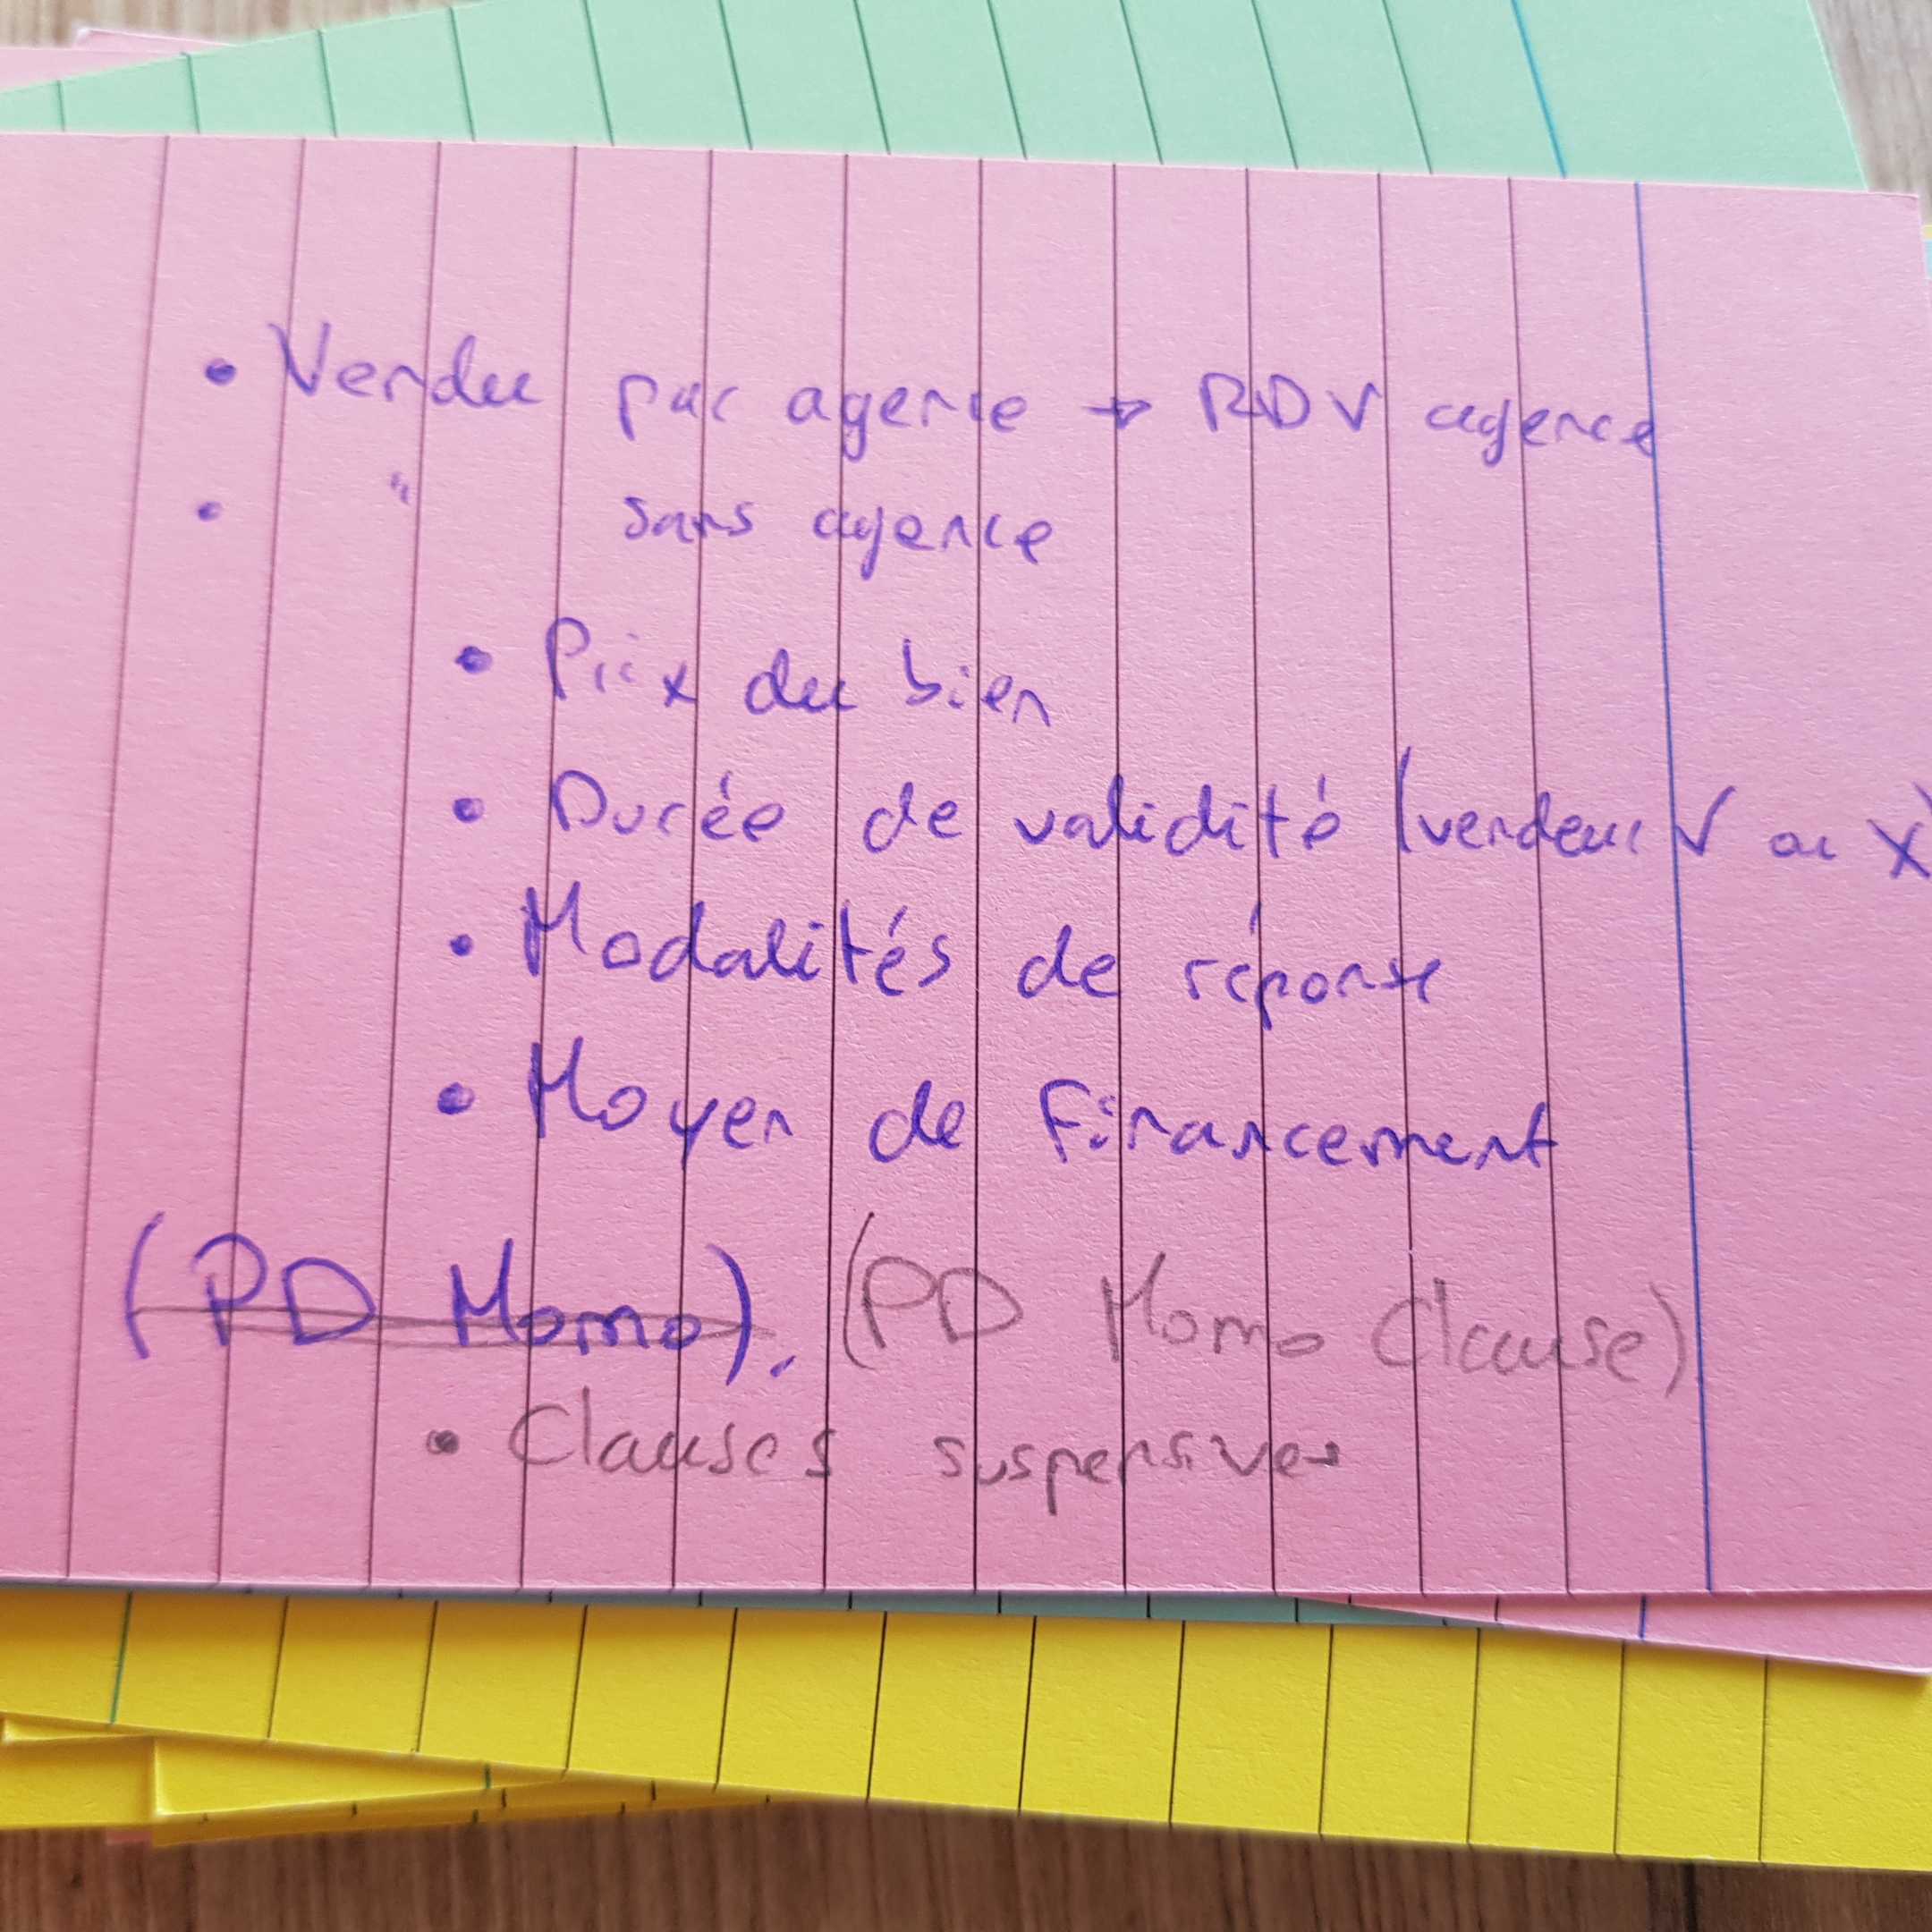 • Vendu par agence → RDV agence
• " sans agence
• Prix du bien
• Durée de validité (vendeur √ ou X)
• Modalités de réponse
• Moyen de financement
(PD Momo). (PD Momo Clause)
• Clauses suspensives